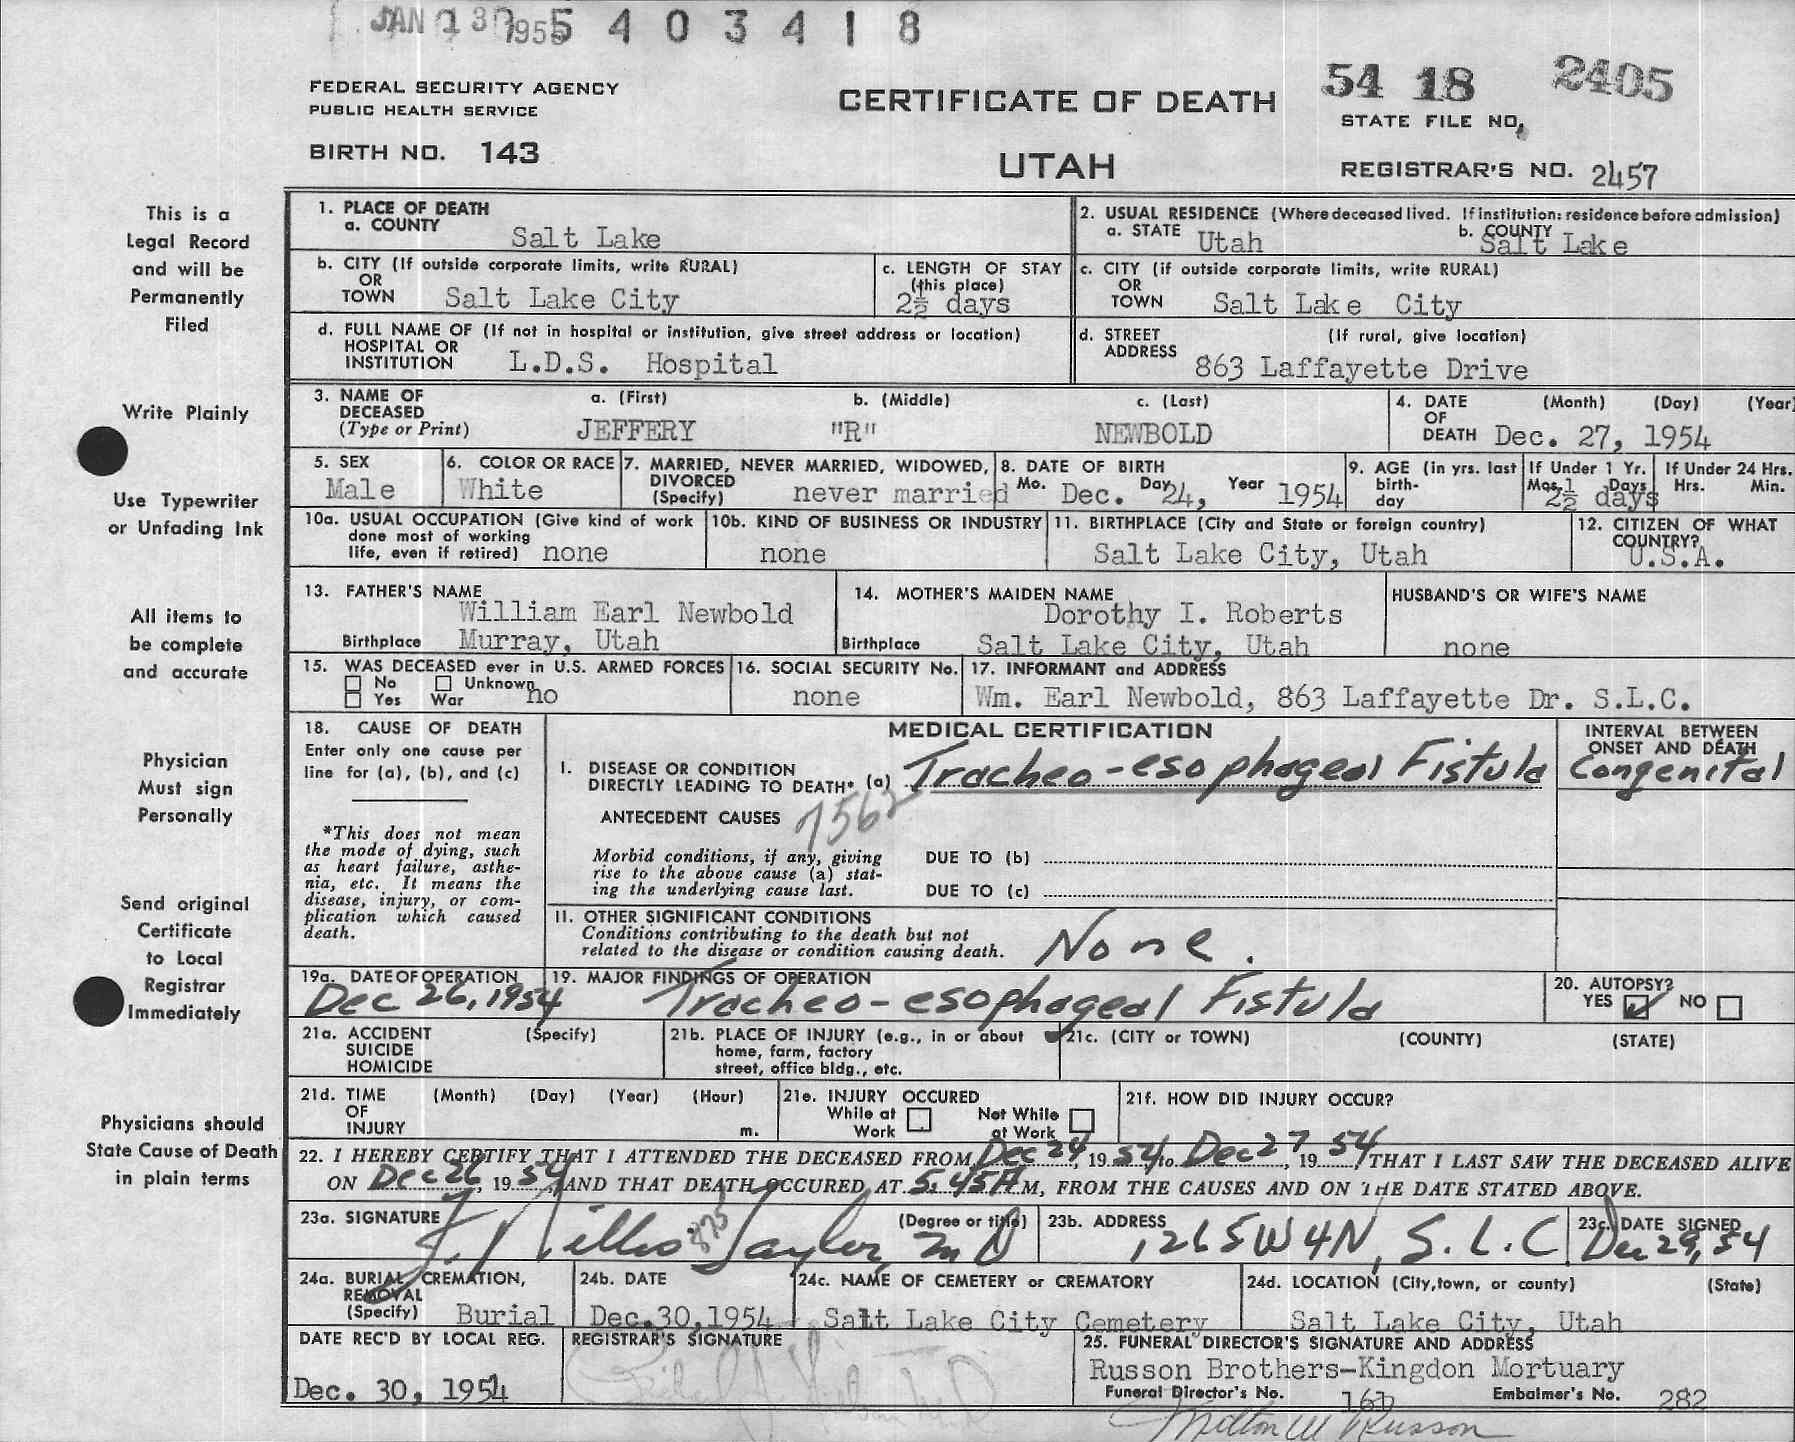 JAN 13 1955 5 4 0 3 4 1 8
FEDERAL SECURITY AGENCY
PUBLIC HEALTH SERVICE
BIRTH NO. 143
CERTIFICATE OF DEATH
UTAH
54 18 2405
STATE FILE NO.
REGISTRAR'S NO. 2457
This is a
Legal Record
and will be
Permanently
Filed
Write Plainly
Use Typewriter
or Unfading Ink
All items to
be complete
and accurate
Physician
Must sign
Personally
Send original
Certificate
to Local
Registrar
Immediately
Physicians should
State Cause of Death
in plain terms
1. PLACE OF DEATH
a. COUNTY Salt Lake
2. USUAL RESIDENCE (Where deceased lived. If institution: residence before admission)
a. STATE Utah b. COUNTY Salt Lake
b. CITY (If outside corporate limits, write RURAL)
OR
TOWN Salt Lake City
c. LENGTH OF STAY
(this place)
2½ days
c. CITY (if outside corporate limits, write RURAL)
OR
TOWN Salt Lake City
d. FULL NAME OF (If not in hospital or institution, give street address or location)
HOSPITAL OR
INSTITUTION L.D.S. Hospital
d. STREET (If rural, give location)
ADDRESS 863 Laffayette Drive
3. NAME OF DECEASED
(Type or Print)
a. (First) b. (Middle) c. (Last)
JEFFERY "R" NEWBOLD
4. DATE (Month) (Day) (Year)
OF
DEATH Dec. 27, 1954
5. SEX
Male
6. COLOR OR RACE
White
7. MARRIED, NEVER MARRIED, WIDOWED,
DIVORCED
(Specify) never married
8. DATE OF BIRTH
Mo. Dec. Day 24, Year 1954
9. AGE (in yrs. last
birth-
day
If Under 1 Yr.
Mos. Days
2½ days
If Under 24 Hrs.
Hrs. Min.
10a. USUAL OCCUPATION (Give kind of work
done most of working
life, even if retired) none
10b. KIND OF BUSINESS OR INDUSTRY
none
11. BIRTHPLACE (City and State or foreign country)
Salt Lake City, Utah
12. CITIZEN OF WHAT
COUNTRY?
U.S.A.
13. FATHER'S NAME
William Earl Newbold
Birthplace Murray, Utah
14. MOTHER'S MAIDEN NAME
Dorothy I. Roberts
Birthplace Salt Lake City, Utah
HUSBAND'S OR WIFE'S NAME
none
15. WAS DECEASED ever in U.S. ARMED FORCES
No Unknown
Yes War no
16. SOCIAL SECURITY No.
none
17. INFORMANT and ADDRESS
Wm. Earl Newbold, 863 Laffayette Dr. S.L.C.
18. CAUSE OF DEATH
Enter only one cause per
line for (a), (b), and (c)
*This does not mean
the mode of dying, such
as heart failure, asthe-
nia, etc. It means the
disease, injury, or com-
plication which caused
death.
MEDICAL CERTIFICATION
INTERVAL BETWEEN
ONSET AND DEATH
I. DISEASE OR CONDITION
DIRECTLY LEADING TO DEATH* (a) Tracheo-esophageal Fistula Congenital
ANTECEDENT CAUSES 7562
Morbid conditions, if any, giving
rise to the above cause (a) stat-
ing the underlying cause last.
DUE TO (b)
DUE TO (c)
II. OTHER SIGNIFICANT CONDITIONS
Conditions contributing to the death but not
related to the disease or condition causing death. None.
19a. DATE OF OPERATION
Dec 26, 1954
19. MAJOR FINDINGS OF OPERATION
Tracheo-esophageal Fistula
20. AUTOPSY?
YES NO
21a. ACCIDENT (Specify)
SUICIDE
HOMICIDE
21b. PLACE OF INJURY (e.g., in or about
home, farm, factory
street, office bldg., etc.
21c. (CITY or TOWN) (COUNTY) (STATE)
21d. TIME (Month) (Day) (Year) (Hour)
OF
INJURY m.
21e. INJURY OCCURED
While at Work Not While at Work
21f. HOW DID INJURY OCCUR?
22. I HEREBY CERTIFY THAT I ATTENDED THE DECEASED FROM Dec 24, 19 54, to Dec 27, 19 54, THAT I LAST SAW THE DECEASED ALIVE
ON Dec 26, 19 54, AND THAT DEATH OCCURED AT 5:45 A M, FROM THE CAUSES AND ON THE DATE STATED ABOVE.
23a. SIGNATURE (Degree or title)
Taylor MD
875
23b. ADDRESS
S.L.C
23c. DATE SIGNED
Dec 29, 54
24a. BURIAL, CREMATION,
REMOVAL
(Specify) Burial
24b. DATE
Dec. 30, 1954
24c. NAME OF CEMETERY or CREMATORY
Salt Lake City Cemetery
24d. LOCATION (City, town, or county) (State)
Salt Lake City, Utah
DATE REC'D BY LOCAL REG.
Dec. 30, 1954
REGISTRAR'S SIGNATURE
25. FUNERAL DIRECTOR'S SIGNATURE AND ADDRESS
Russon Brothers-Kingdon Mortuary
Funeral Director's No. Embalmer's No. 282
Milton W Russon